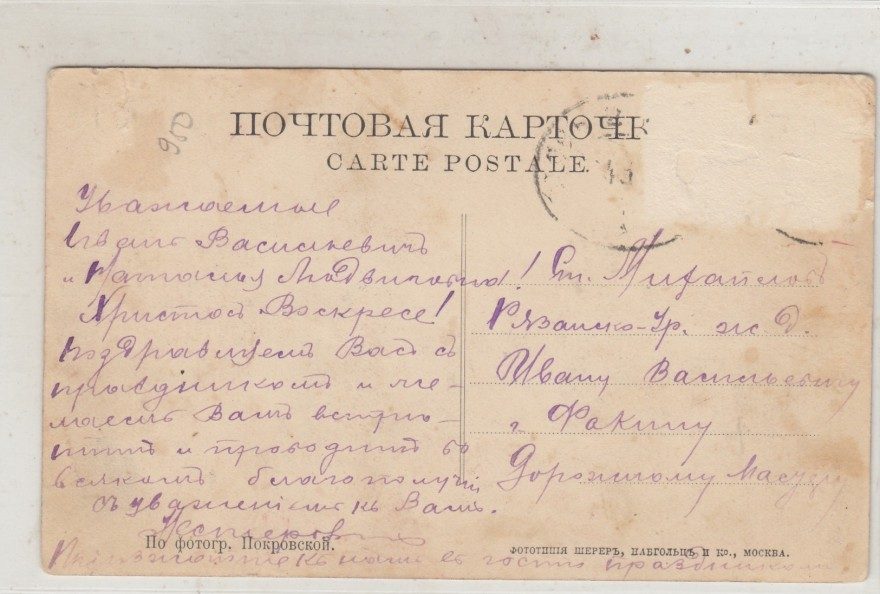 950
ПОЧТОВАЯ КАРТОЧК
CARTE POSTALE.
Уважаемые
Иванъ Васильевичъ
и Наталья Людвиговна!
Христосъ Воскресе!
поздравляемъ Васъ съ
праздникомъ и же-
лаемъ Вамъ встрѣ-
тить и проводить во
всякомъ благополучіи
съ уваженіемъ къ Вамъ.
Нестеров
къ намъ въ гости праздником
Ст. Михайловъ
Рязанско-Ур. ж. д.
Ивану Васильевичу
г. Фокину
Дорожному
По фотогр. Покровской.
ФОТОТИПІЯ ШЕРЕРЪ, НАБГОЛЬЦЪ И Ко., МОСКВА.